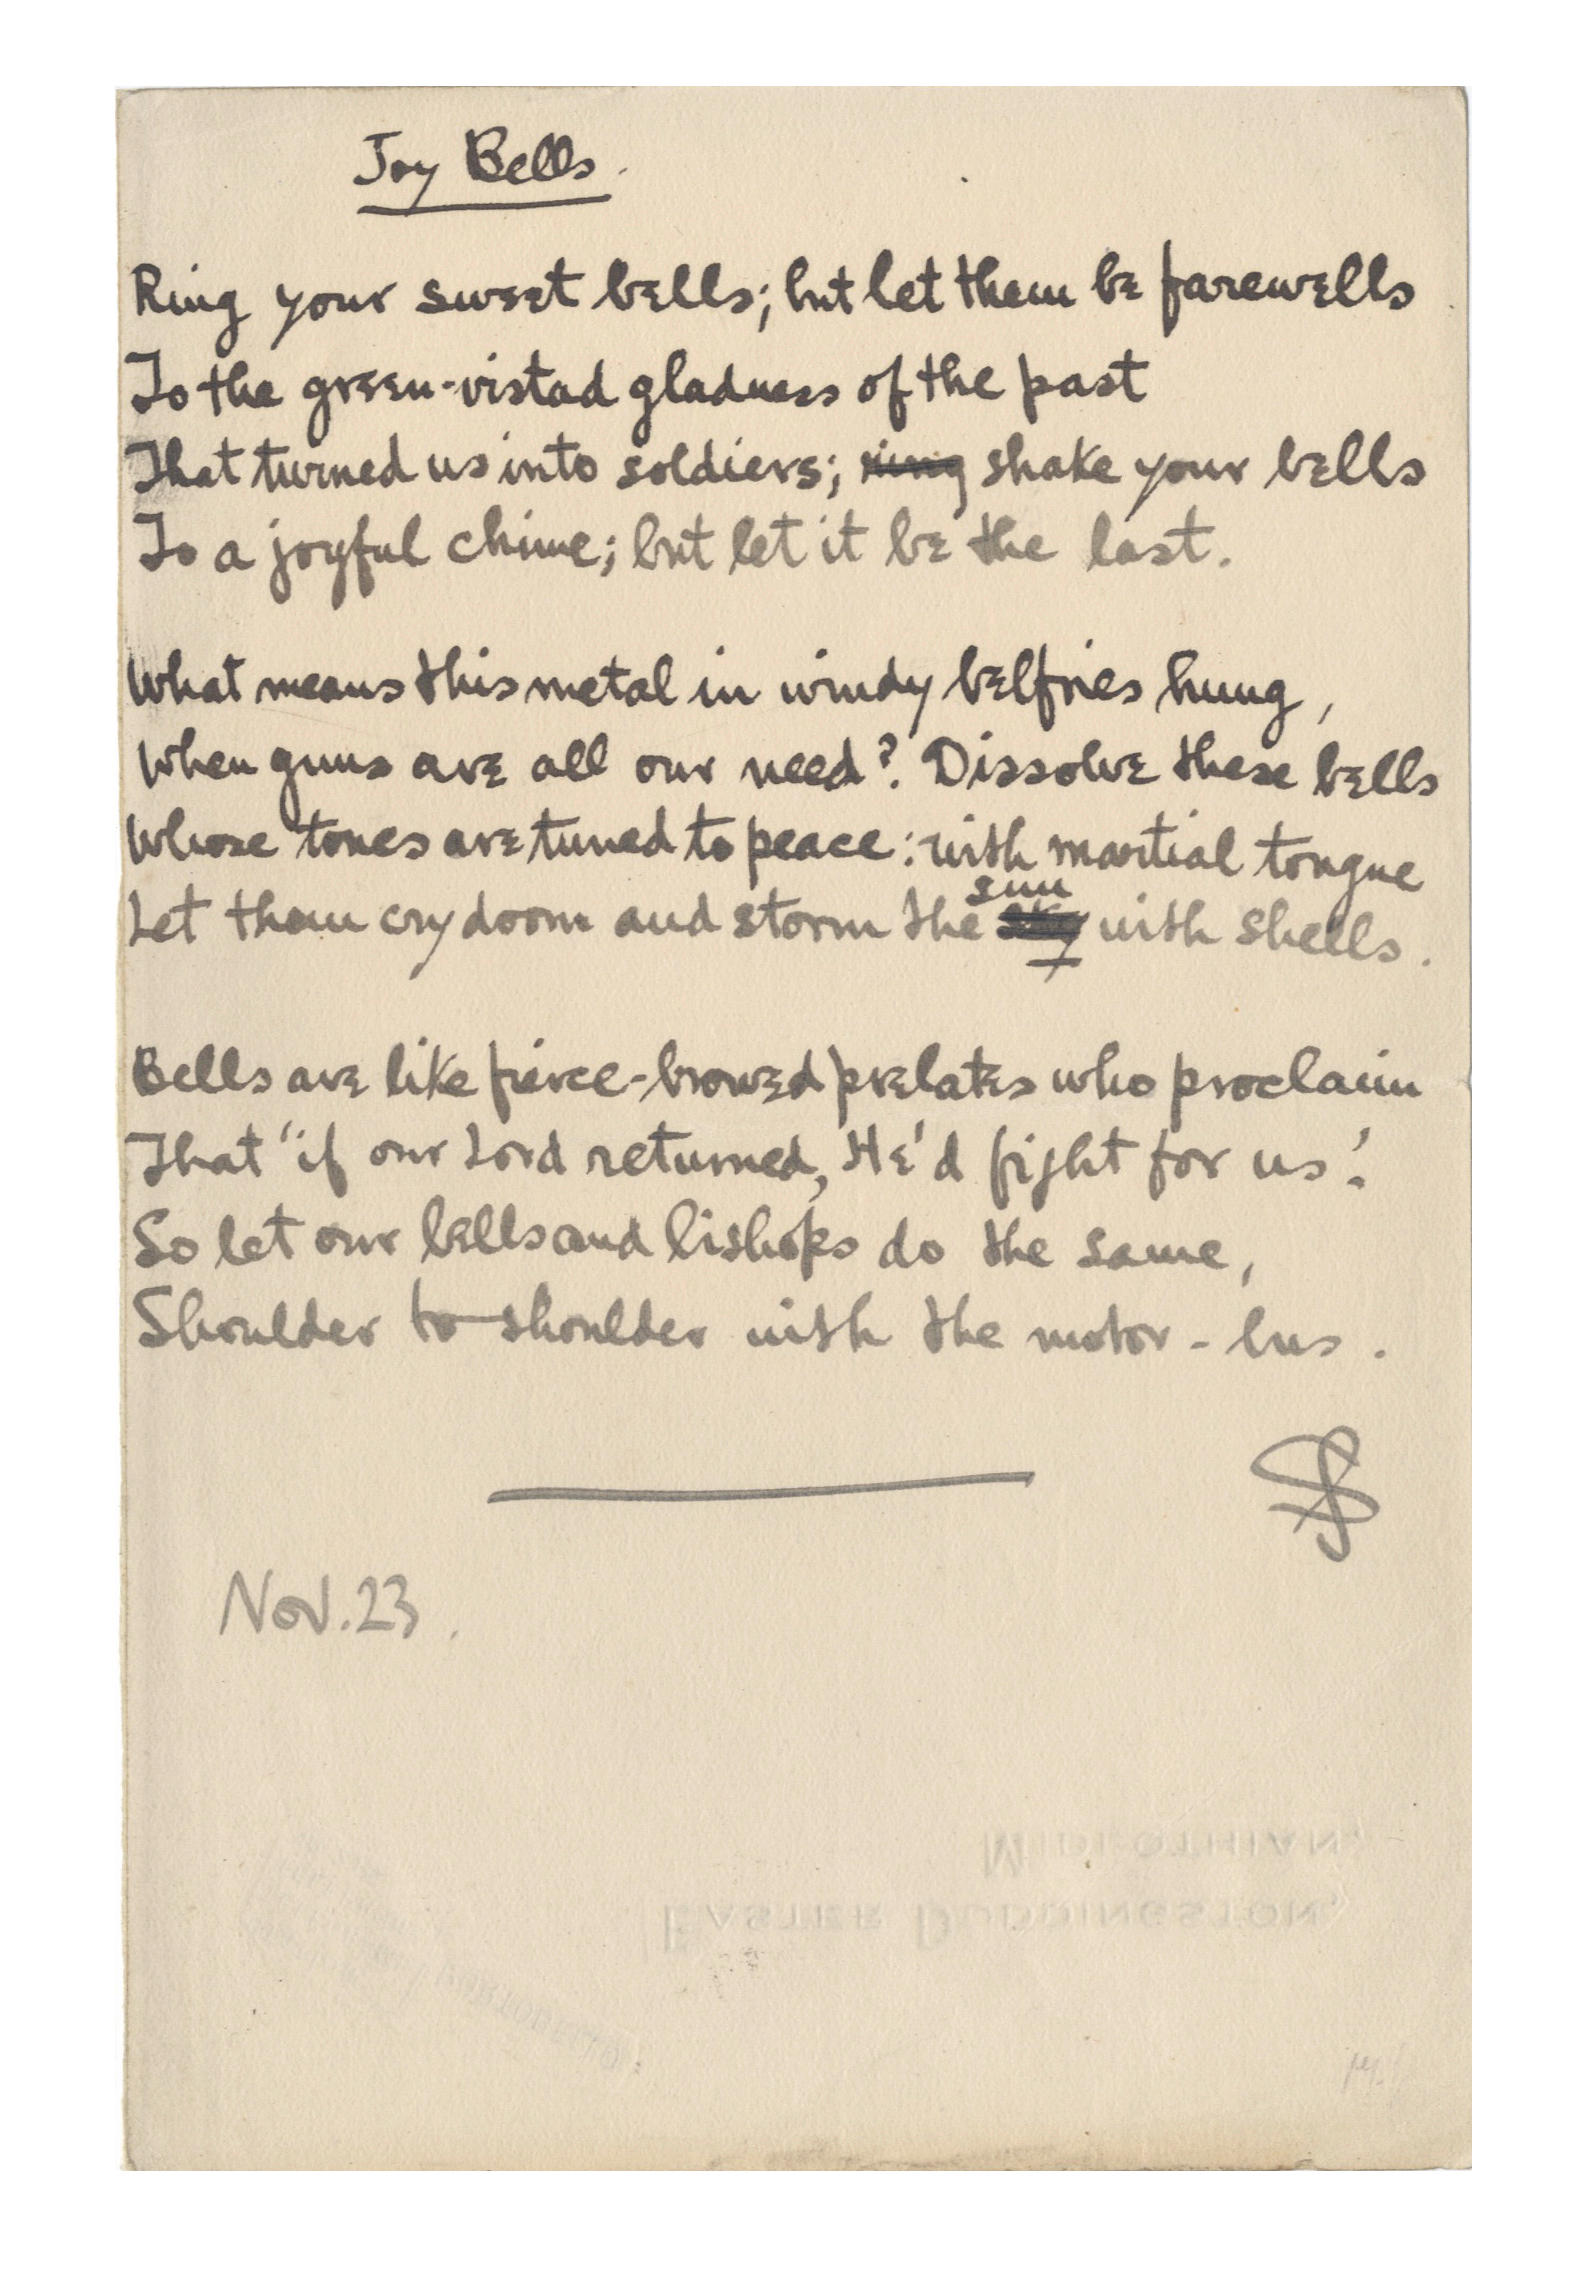 Joy Bells.
Ring your sweet bells; but let them be farewells
To the green-vistad gladness of the past
That turned us into soldiers; ring shake your bells
To a joyful chime; but let it be the last.
What means this metal in windy belfries hung,
When guns are all our need? Dissolve these bells
Whose tones are tuned to peace: with martial tongue
Let them cry doom and storm the sky sun with shells.
Bells are like fierce-browed prelates who proclaim
That "if our Lord returned, He'd fight for us".
So let our bells and bishops do the same,
Shoulder to shoulder with the motor-bus.
SS
Nov. 23.
MIDLOTHIAN.
EASTER DUDDINGSTON,